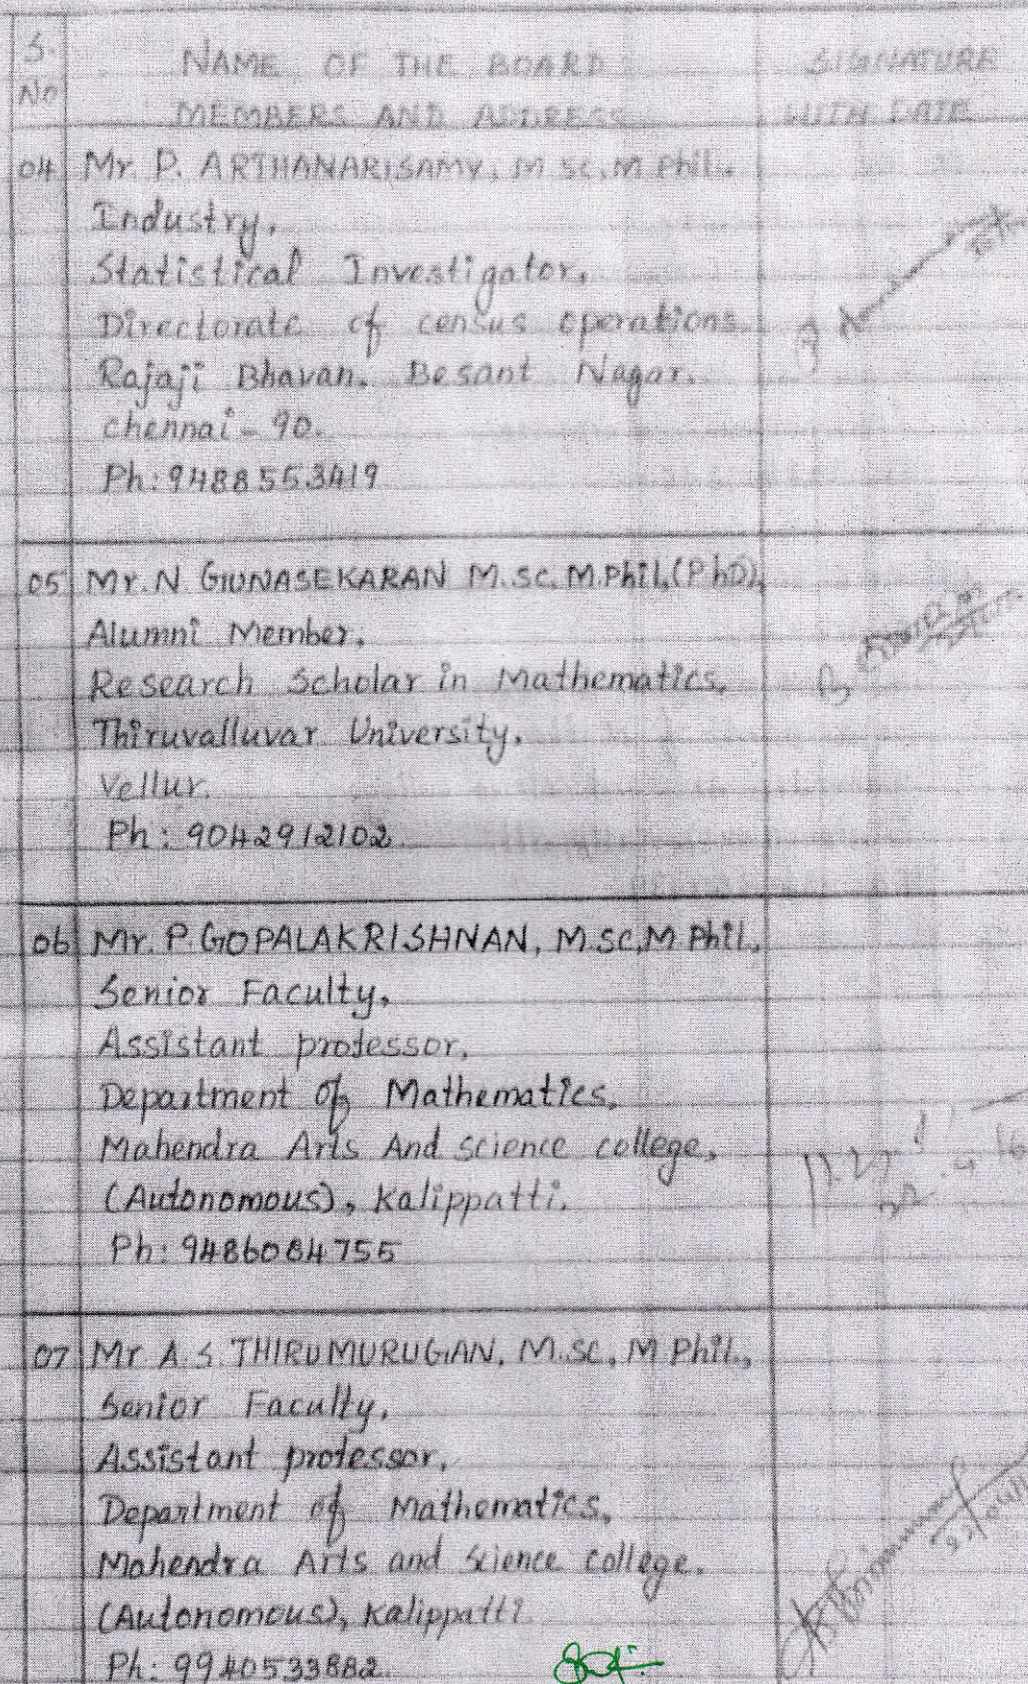 S. No NAME OF THE BOARD MEMBERS AND ADDRESS SIGNATURE WITH DATE
04 Mr. P. ARTHANARISAMY, M sc, M Phil.
Industry,
Statistical Investigator,
Directorate of census operations.
Rajaji Bhavan. Besant Nagar.
chennai - 90.
Ph: 9488553419
05 Mr. N. GUNASEKARAN M.sc. M.Phil, (PhD),
Alumni Member,
Research Scholar in Mathematics,
Thiruvalluvar University,
Vellur.
Ph: 9042912102
06 Mr. P. GOPALAKRISHNAN, M.SC, M Phil.,
Senior Faculty,
Assistant professor,
Department of Mathematics,
Mahendra Arts And science college,
(Autonomous), Kalippatti.
Ph: 9486084755
07 Mr A. S. THIRUMURUGAN, M.SC, M Phil.,
Senior Faculty,
Assistant professor,
Department of Mathematics,
Mahendra Arts and science college.
(Autonomous), Kalippatti
Ph: 9940533882